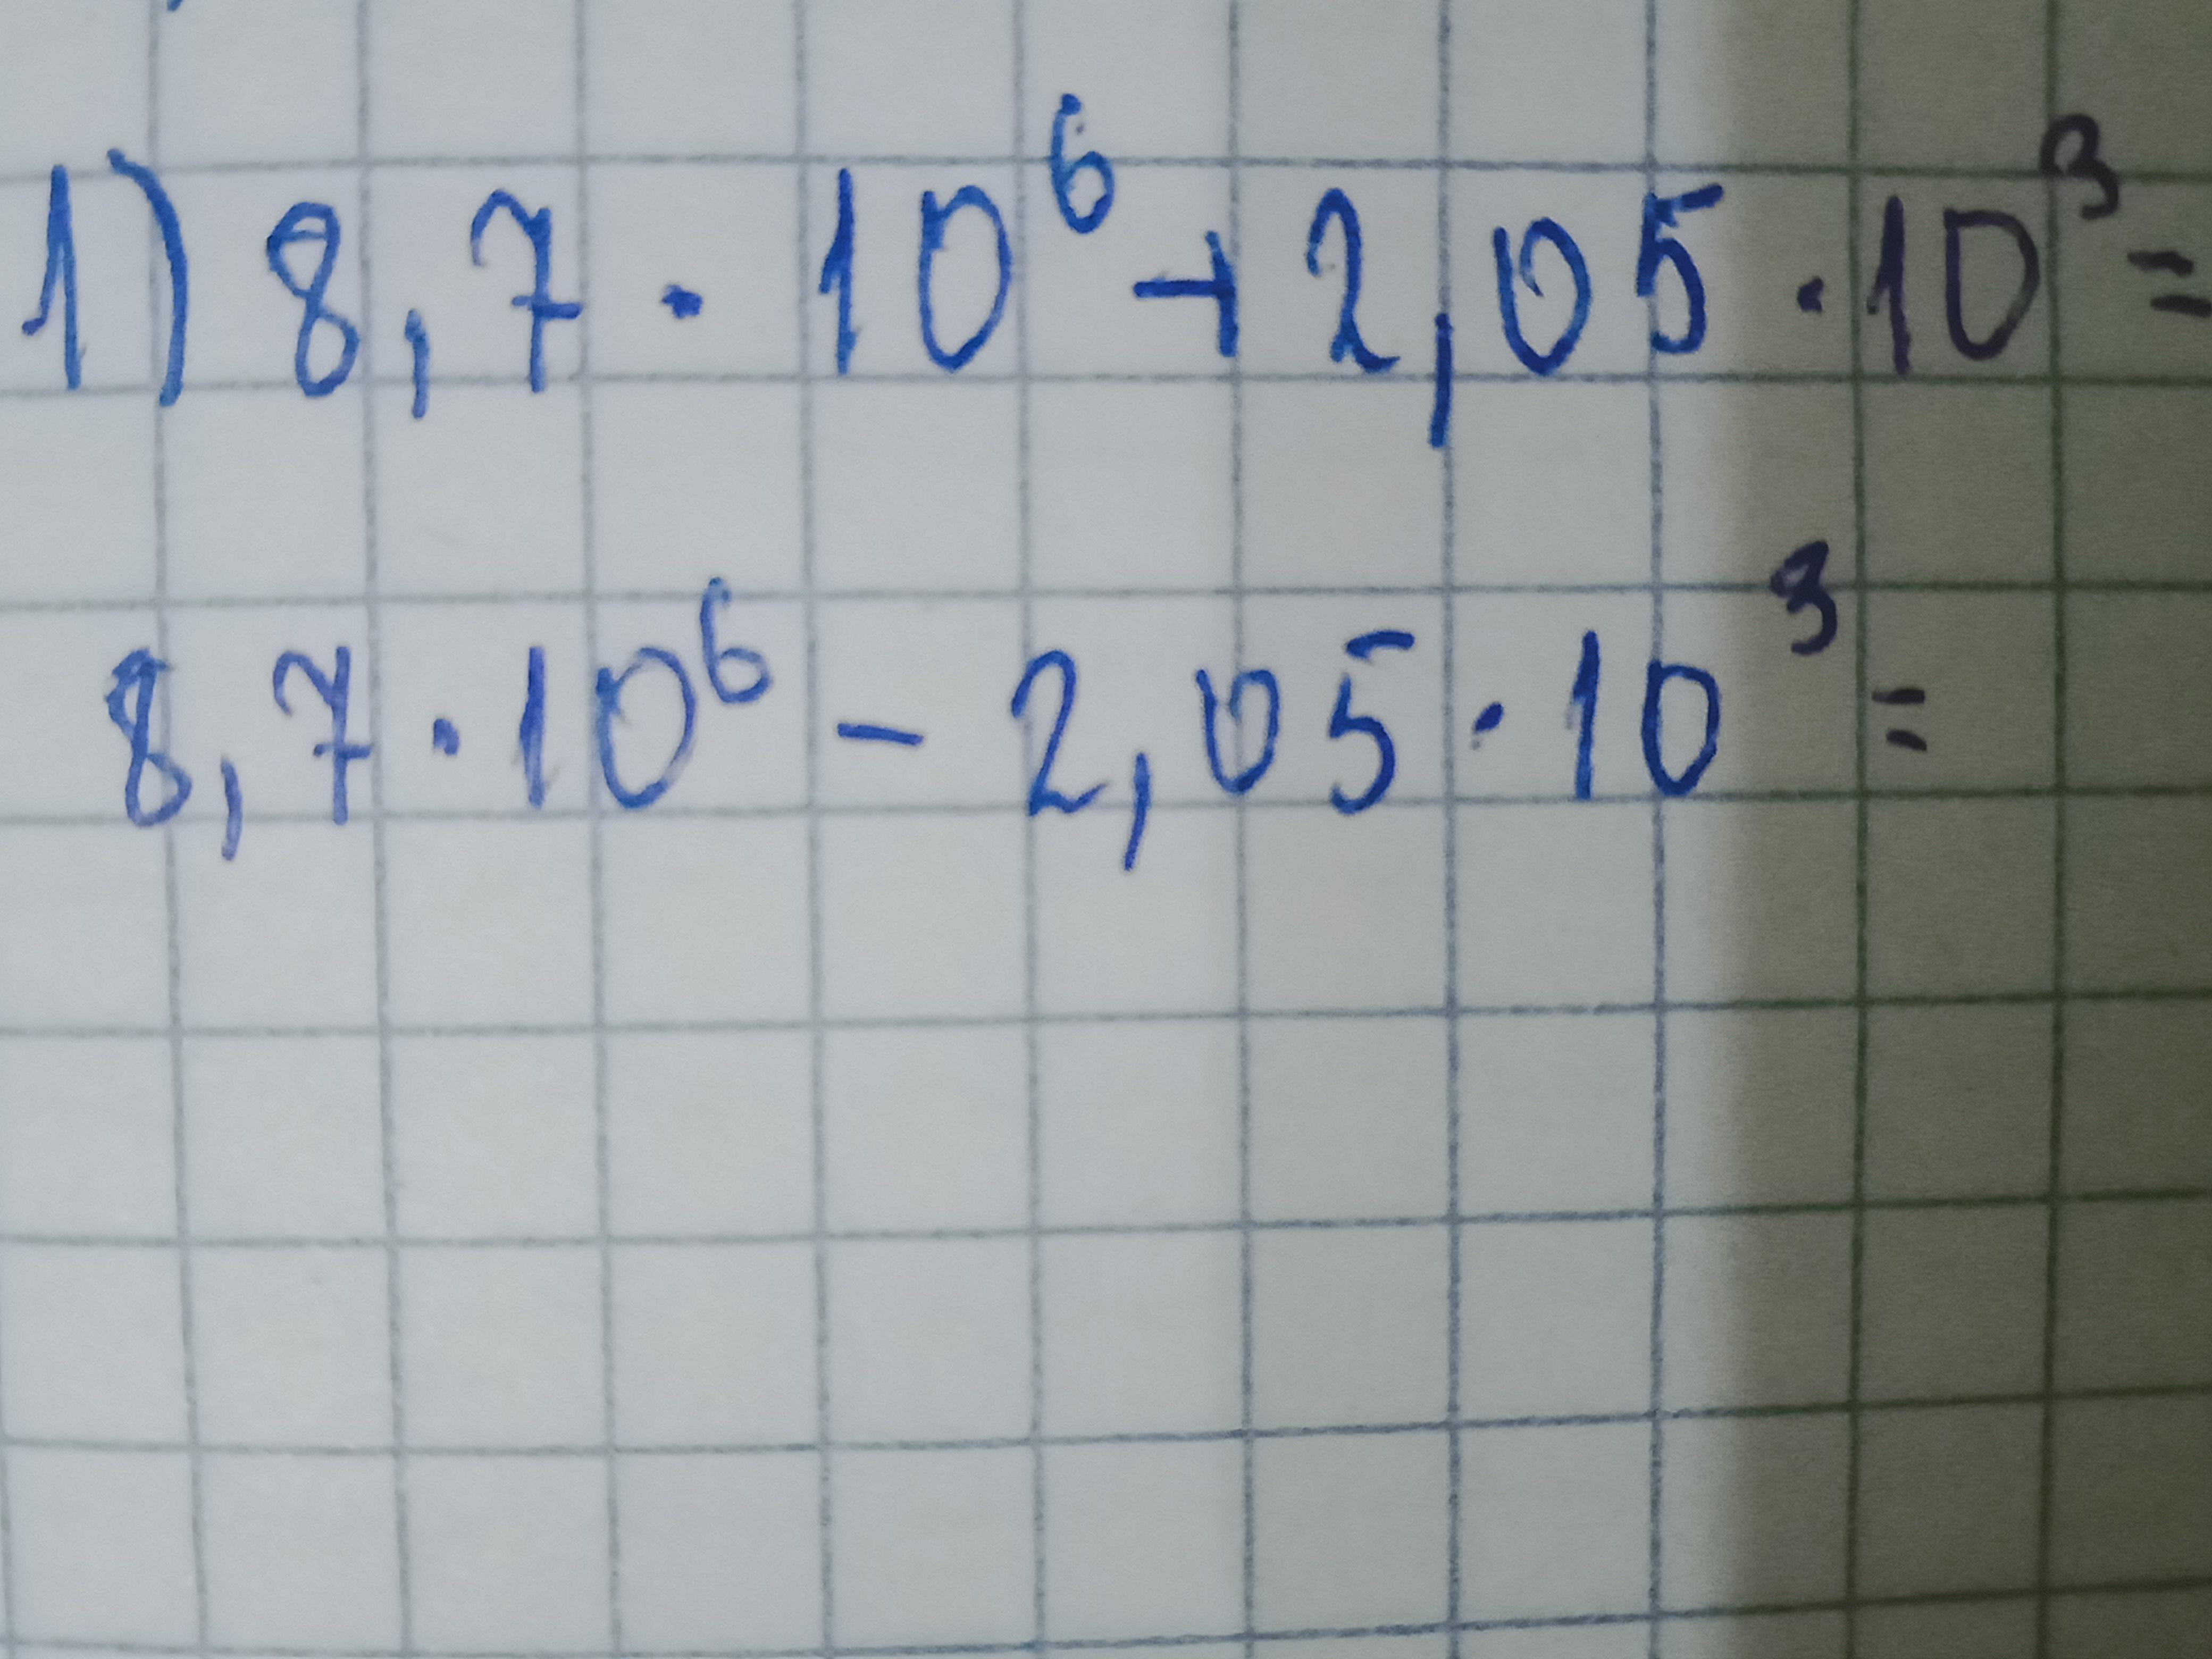 1) 8,7 · 10⁶ + 2,05 · 10³ =
8,7 · 10⁶ - 2,05 · 10³ =